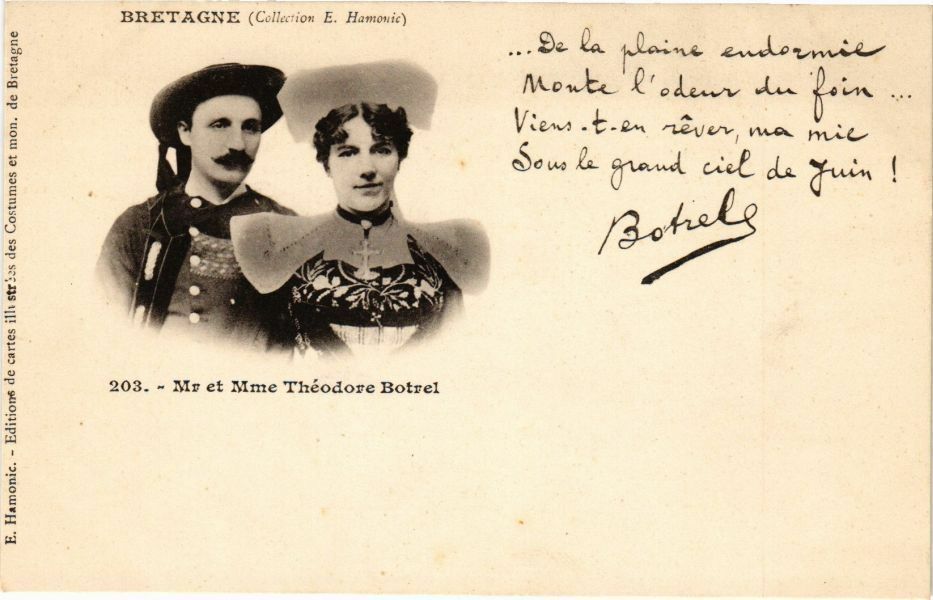 BRETAGNE (Collection E. Hamonic)
...De la plaine endormie
Monte l'odeur du foin ...
Viens-t-en rêver, ma mie
Sous le grand ciel de Juin !
Botrel
203. - Mr et Mme Théodore Botrel
E. Hamonic. - Editions de cartes illustrées des Costumes et mon. de Bretagne